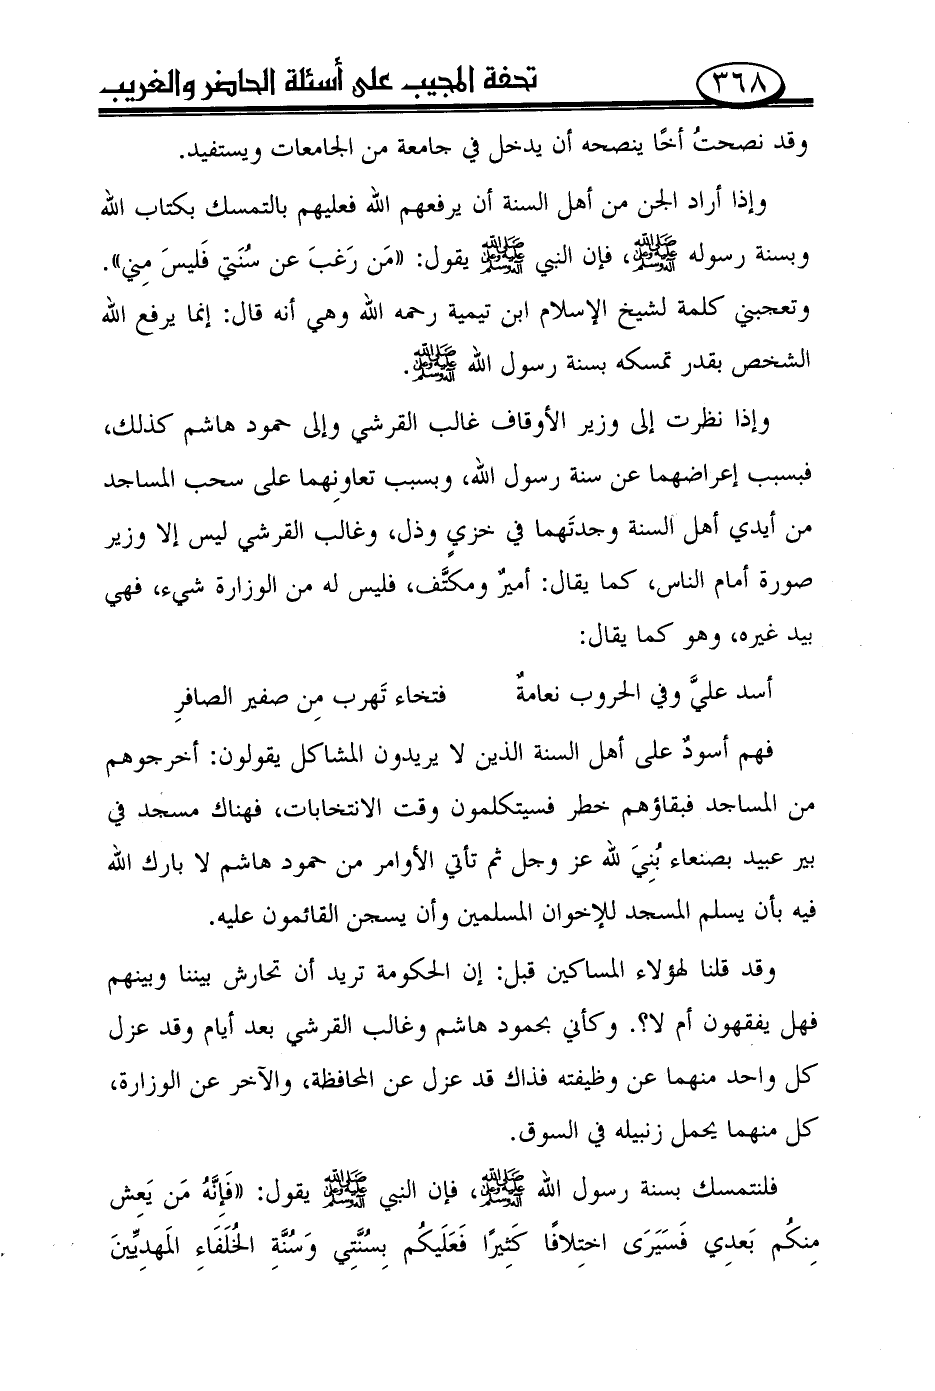 ٣٦٨ تحفة المجيب على أسئلة الحاضر والغريب
وقد نصحتُ أخًا ينصحه أن يدخل في جامعة من الجامعات ويستفيد.
وإذا أراد الجن من أهل السنة أن يرفعهم الله فعليهم بالتمسك بكتاب الله
وبسنة رسوله ﷺ، فإن النبي ﷺ يقول: «مَن رَغبَ عن سُنَتي فَليسَ مِني».
وتعجبني كلمة لشيخ الإسلام ابن تيمية رحمه الله وهي أنه قال: إنما يرفع الله
الشخص بقدر تمسكه بسنة رسول الله ﷺ.
وإذا نظرت إلى وزير الأوقاف غالب القرشي وإلى حمود هاشم كذلك،
فبسبب إعراضهما عن سنة رسول الله، وبسبب تعاونِهما على سحب المساجد
من أيدي أهل السنة وجدتَهما في خزيٍ وذل، وغالب القرشي ليس إلا وزير
صورة أمام الناس، كما يقال: أميرٌ ومكتَّف، فليس له من الوزارة شيء، فهي
بيد غيره، وهو كما يقال:
أسد عليَّ وفي الحروب نعامةٌ فتخاء تَهرب مِن صفير الصافرِ
فهم أسودٌ على أهل السنة الذين لا يريدون المشاكل يقولون: أخرجوهم
من المساجد فبقاؤهم خطر فسيتكلمون وقت الانتخابات، فهناك مسجد في
بير عبيد بصنعاء بُنِيَ لله عز وجل ثم تأتي الأوامر من حمود هاشم لا بارك الله
فيه بأن يسلم المسجد للإخوان المسلمين وأن يسجن القائمون عليه.
وقد قلنا لهؤلاء المساكين قبل: إن الحكومة تريد أن تحارش بيننا وبينهم
فهل يفقهون أم لا؟. وكأني بحمود هاشم وغالب القرشي بعد أيام وقد عزل
كل واحد منهما عن وظيفته فذاك قد عزل عن المحافظة، والآخر عن الوزارة،
كل منهما يحمل زنبيله في السوق.
فلنتمسك بسنة رسول الله ﷺ، فإن النبي ﷺ يقول: «فَإِنَّهُ مَن يَعِش
مِنكُم بَعدِي فَسَيَرَى اختِلافًا كَثِيرًا فَعَلَيكُم بِسُنَّتِي وَسُنَّةِ الخُلَفَاءِ المَهدِيِّينَ